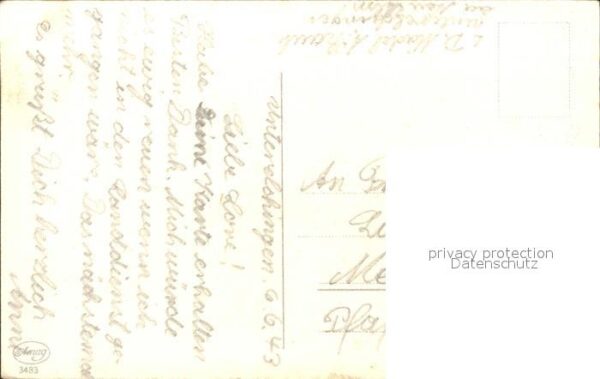 Unterelchingen, 6.6.43
Liebe Lore!
Habe Deine Karte erhalten
Besten Dank. Mich würde
es ewig reuen wenn ich
nicht in den Landdienst ge-
gangen wäre. Das nächstemal
mehr.
es grüßt Dich herzlich
Anne
Unterelchingen
An
Pfa
privacy protection
Datenschutz
Amag
3483